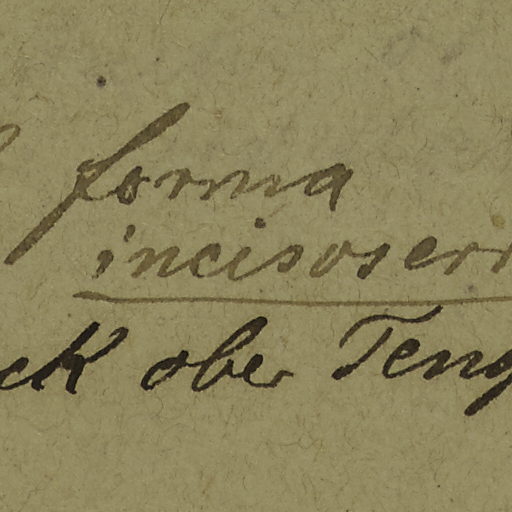 forma
incisoserr
ck ober Teng